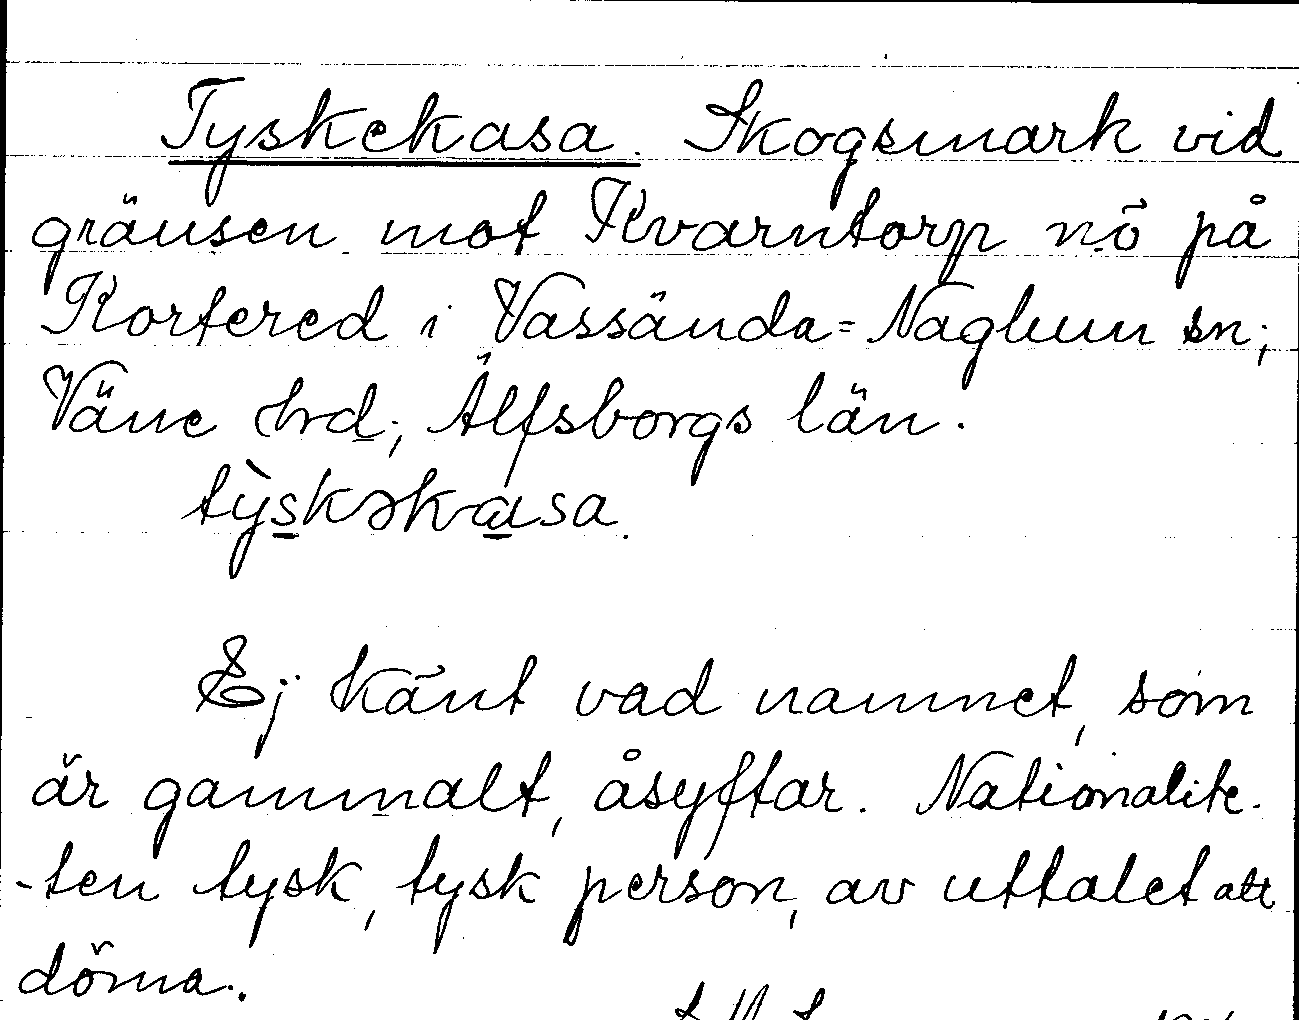 Tyskekasa. Skogsmark vid
gränsen mot Kvarntorp nö på
Kortered i Vassända=Naglum sn;
Väne hrd; Älfsborgs län.
tỳskəkasa.
Ej känt vad namnet, som
är gammalt, åsyftar. Nationalite-
-ten tysk, tysk person, av uttalet att
döma.